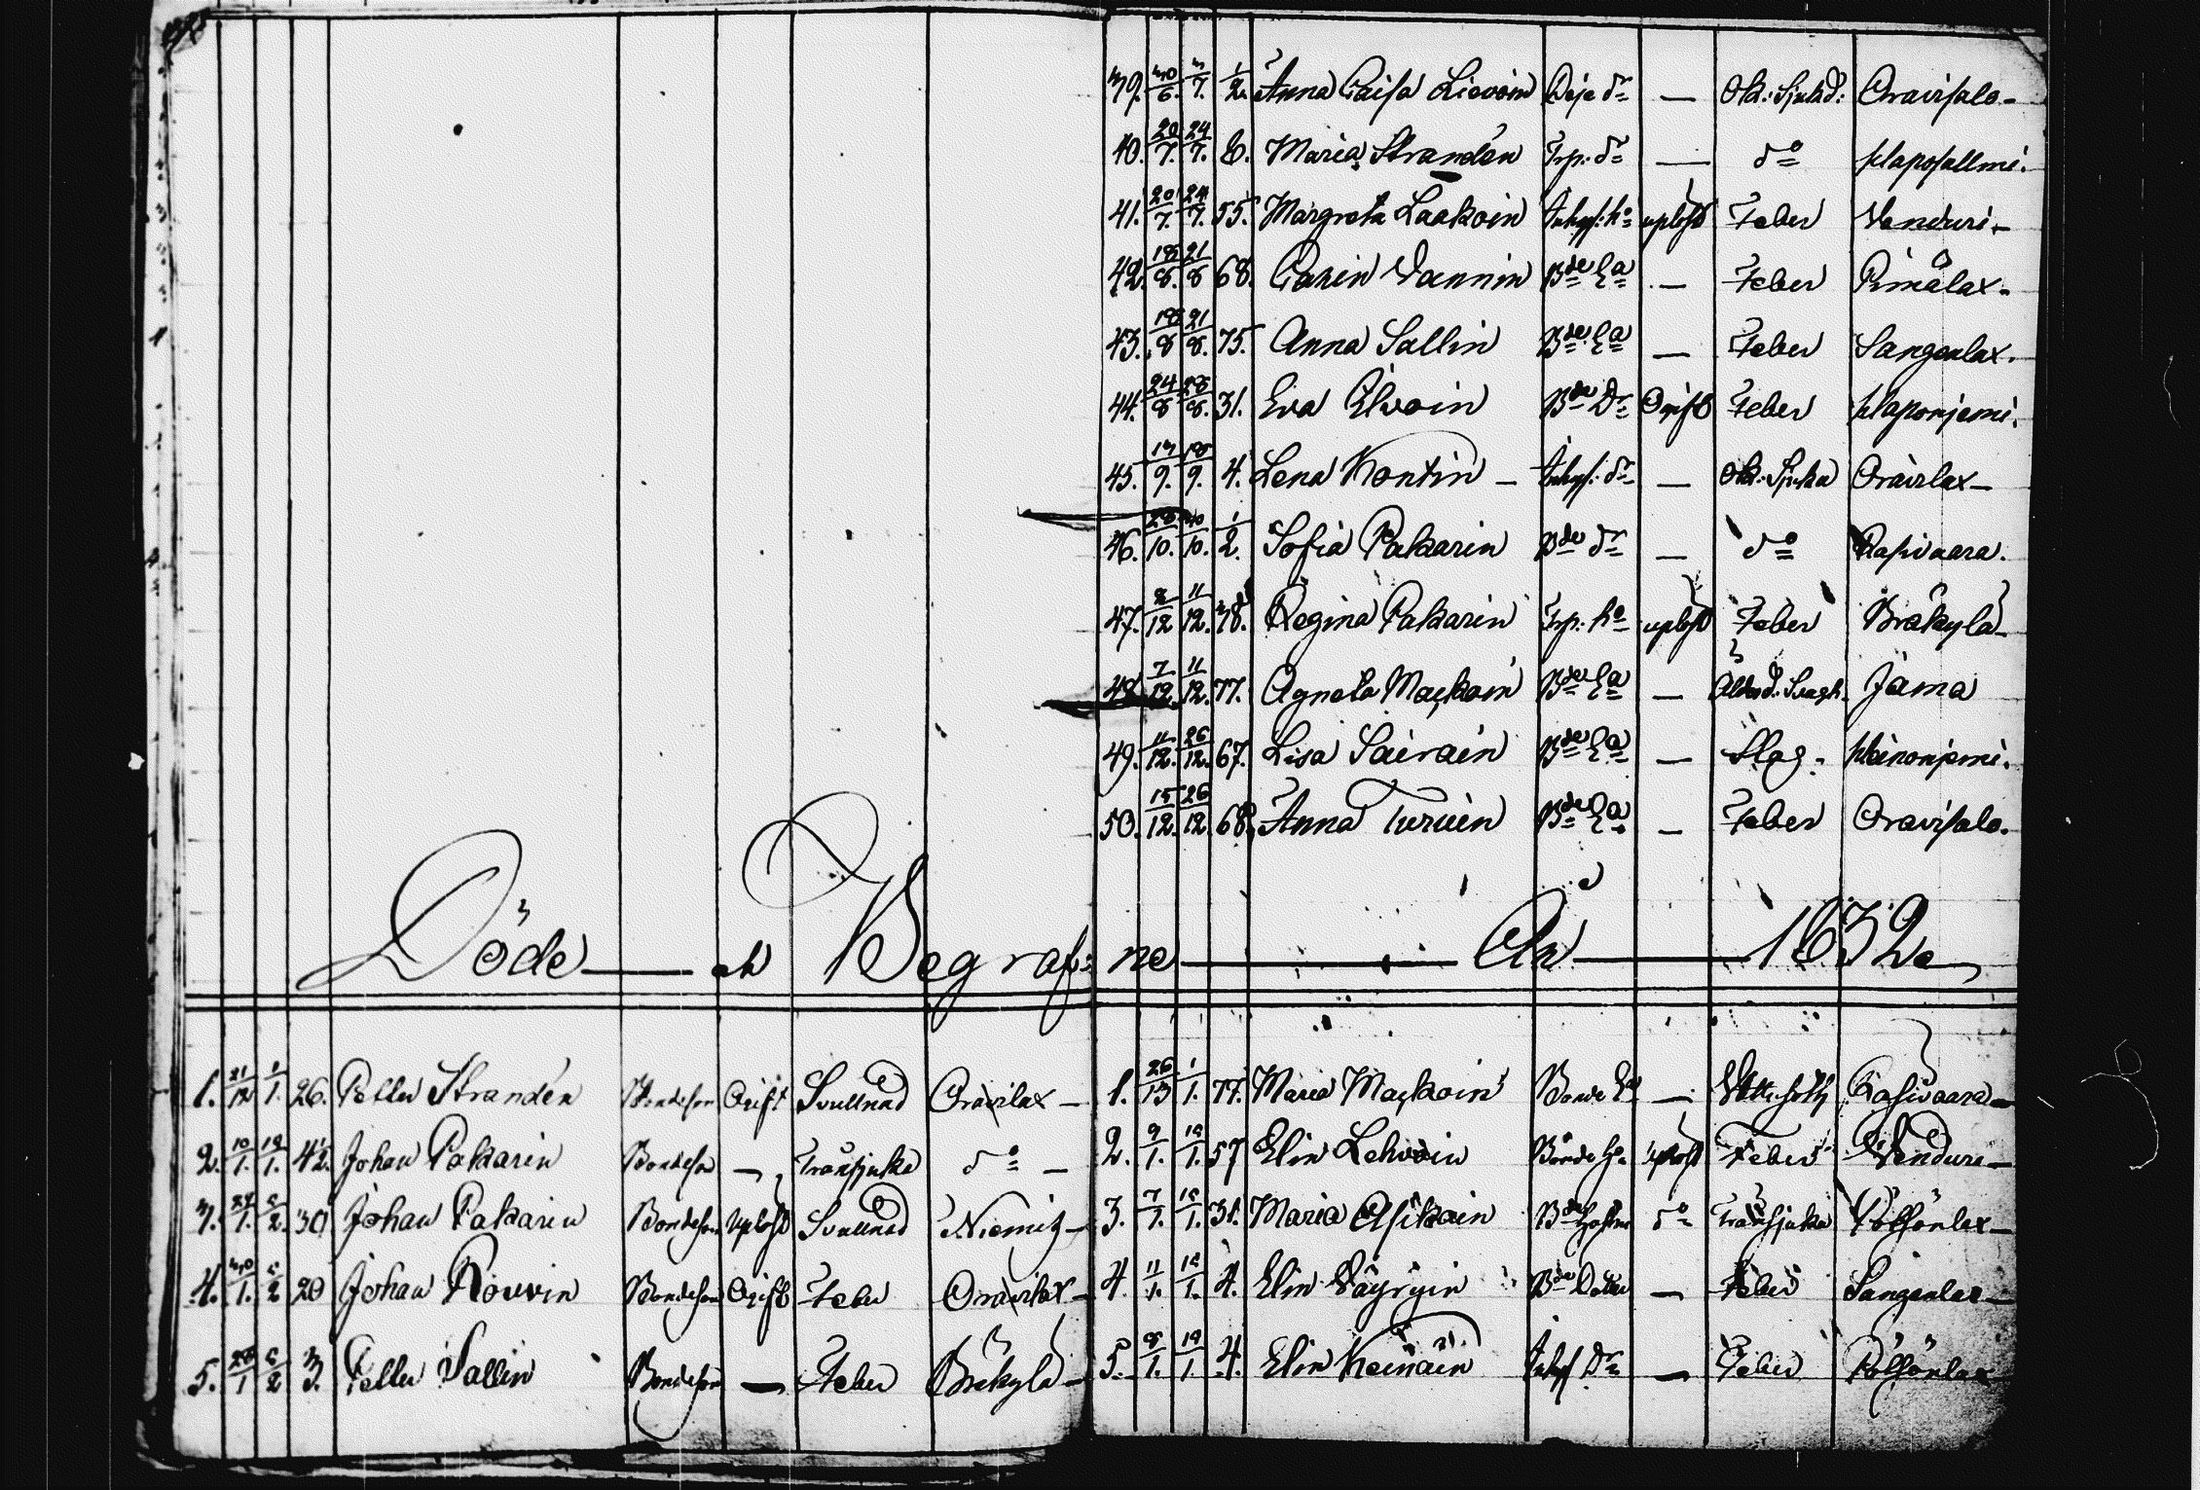 39. 30/6. 3/7. 1/2. Anna Caisa Lievoin Deje dr — Ok: Sjukd: Oravisalo —
40. 20/7. 24/7. 6. Maria Stranden Trp: dr — do Haposallmi.
41. 20/7. 24/7. 55. Margreta Laakoin Inhys: ho uplöst Feber Venduri —
42. 18/8. 21/8 68. Carin Vannin Bde Ea — Feber Rimälax.
43. 18/8 21/8. 75. Anna Sallin Bde Ea — Feber Sangenlax.
44. 24/8 28/8. 31. Eva Elvoin Bde Dr Gift Feber Haponjemi.
45. 13/9. 18/9. 4. Lena Kontin — Inhys: dr — Ok: Sjuka Oravilax —
46. 28/10. 30/10. 1/2. Sofia Pakarin Bde dr — do Rasivaara.
47. 8/12 11/12. 38. Regina Pakarin Trp: ho uplöst Feber Bräkylä —
48. 7/12. 11/12. 77. Agneta Mackoin Bde Ea — Ålderd. Svagh. Jama
49. 11/12. 26/12. 67. Lisa Sairain Bde Ea — Slag. Heinonjemi.
50. 15/12. 26/12 68. Anna Turuin Bde Ea — Feber Oravisalo.
Döde — och Begraf: ne — År — 1832
1. 21/12 1/1. 26. Petter Stranden Bondeson Gift Svullnad Oravilax —
2. 10/1. 19/1. 42. Johan Pakarin Bondeson — Trånsjuka do —
3. 27/1. 5/2. 30 Johan Pakarin Bondeson Uplöst Svullnad Niemis —
4. 30/1. 5/2 20 Johan Rouvin Bondeson Gift Feber Oravilax —
5. 28/1 5/2 3. Petter Sallin Bondeson — Feber Bräkylä —
1. 26/13 1/1. 77. Maria Mackoin Bonde Ea — Rasivaara —
2. 9/1. 15/1. 57 Elin Lehvoin Bonde ho Uplöst Feber Venduri —
3. 7/1. 15/1. 31. Maria Asikain Bde hustru do Trånsjuka Pötsönlax —
4. 11/1. 15/1. 4. Elin Väyryin Bde Dotter — Feber Sangenlax —
5. 8/1. 19/1 4. Elin Keinäin Inhys Dr — Feber Pötsönlax